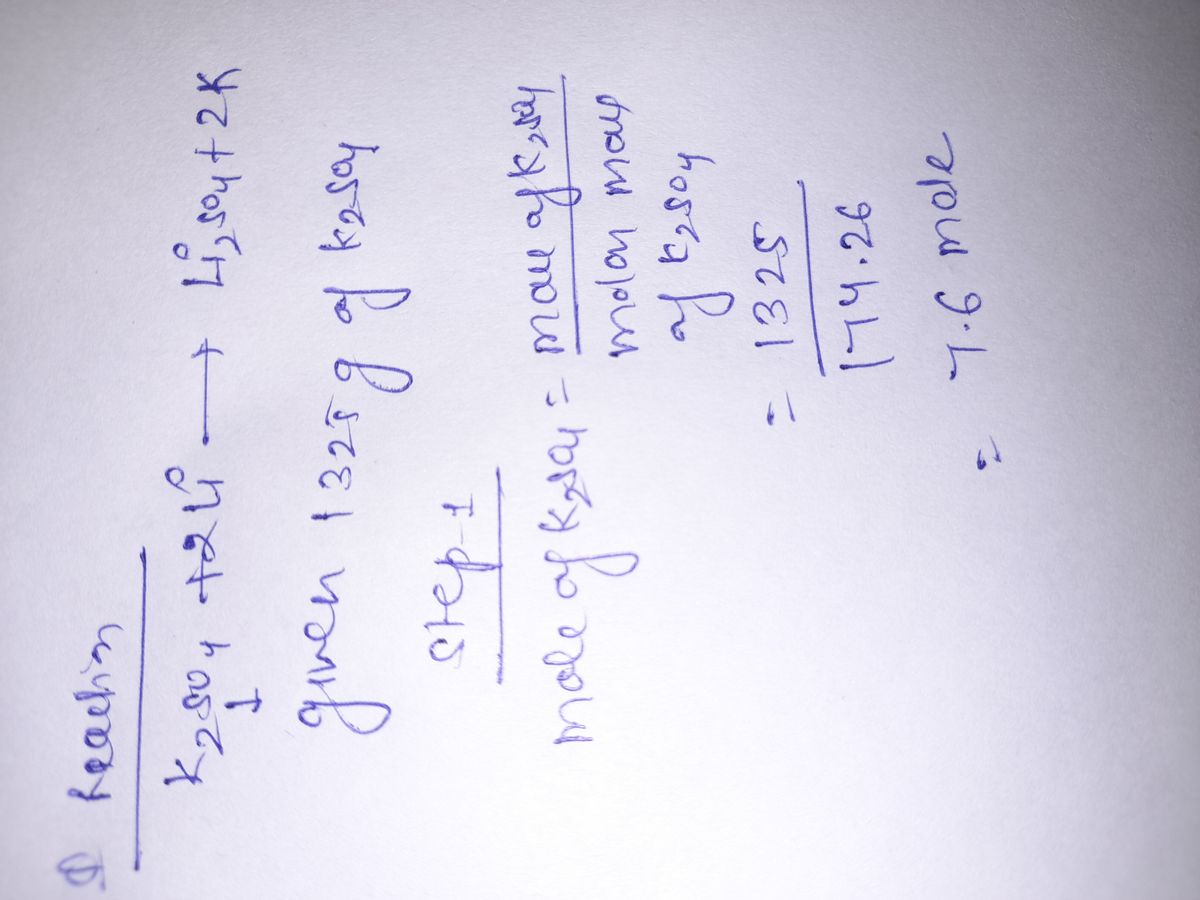 Reaction
K2SO4 + 2Li → Li2SO4 + 2K
1
given 1325 g of K2SO4
Step-1
mole of K2SO4 = mass of K2SO4
molar mass
of K2SO4
= 1325
174.26
= 7.6 mole